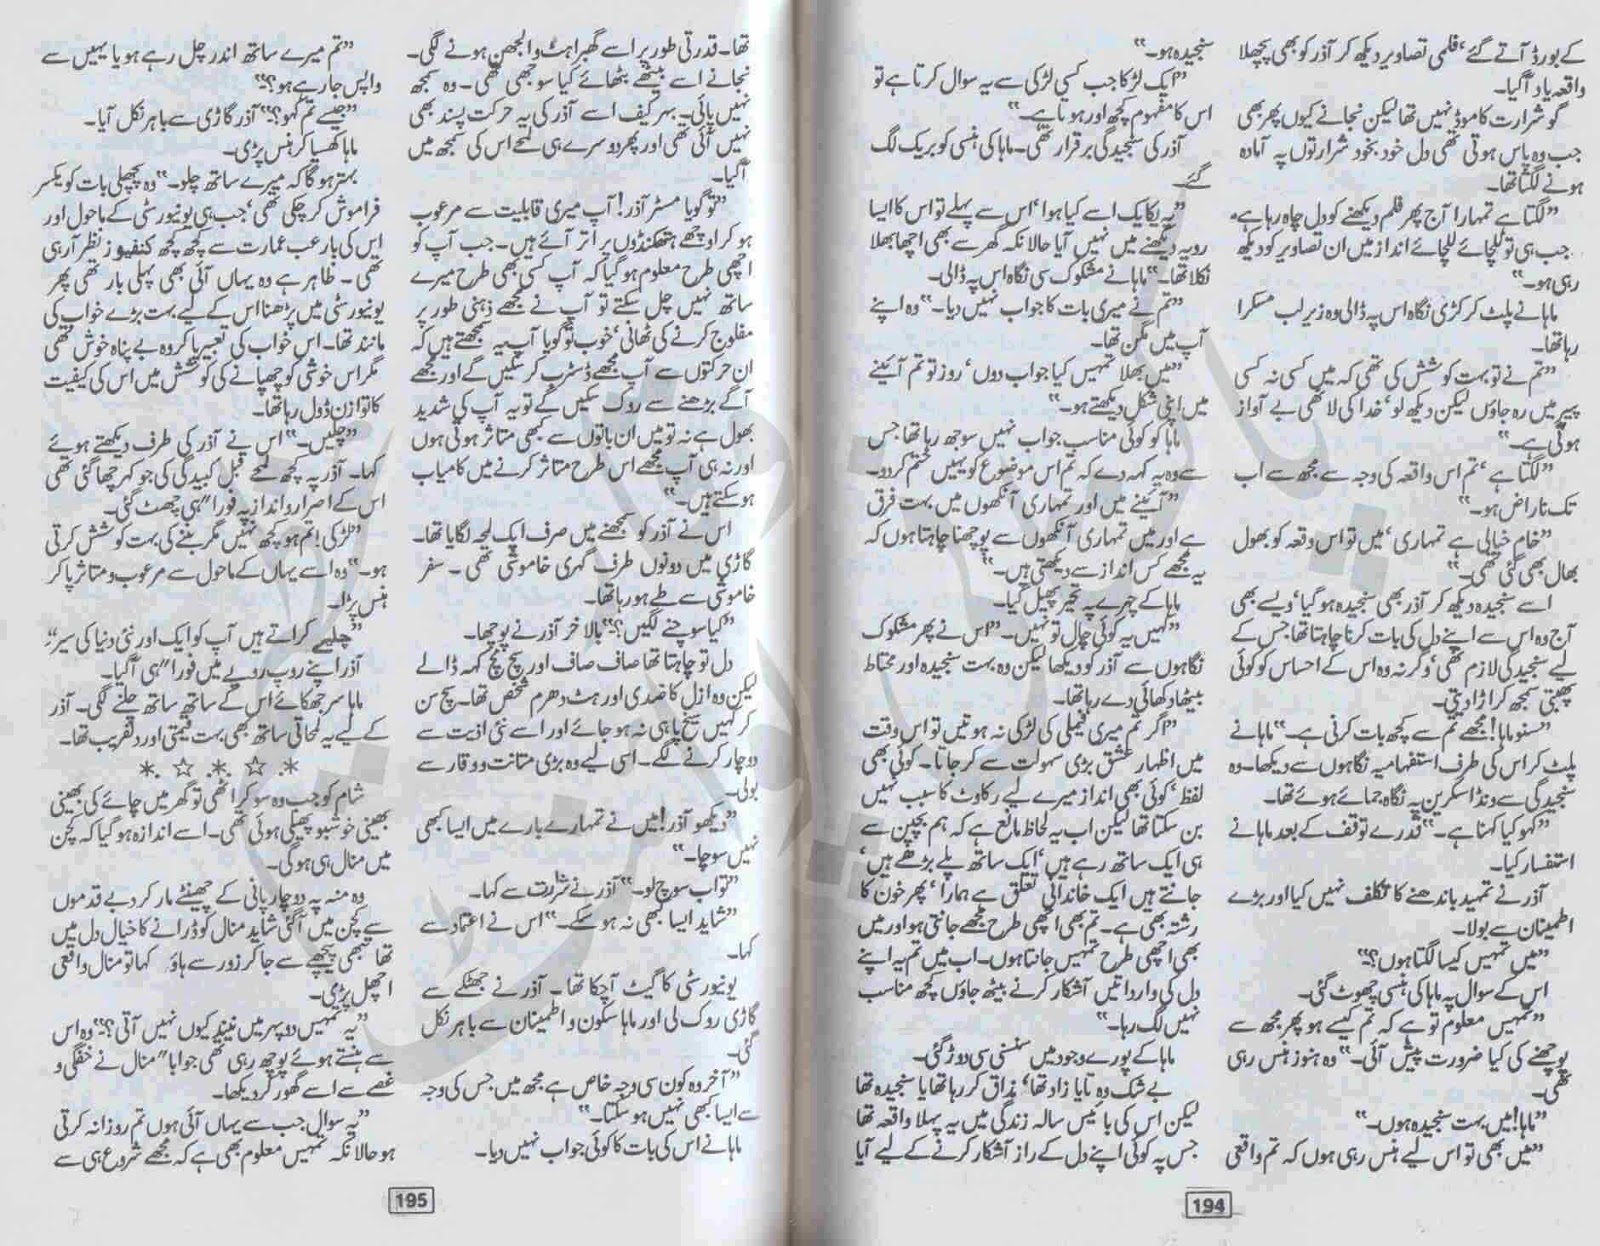 کے بورڈ آتے گئے، فلمی تصاویر دیکھ کر آذر کو بھی پچھلا
واقعہ یاد آگیا۔
گو شرارت کا موڈ نہیں تھا لیکن نجانے کیوں پھر بھی
جب وہ پاس ہوتی تھی دل خود بخود شرارتوں پہ آمادہ
ہونے لگتا تھا۔
”لگتا ہے تمہارا آج پھر فلم دیکھنے کو دل چاہ رہا ہے،
جب ہی تو للچائے للچائے انداز میں ان تصاویر کو دیکھ
رہی ہو۔“
ماہا نے پلٹ کر کڑی نگاہ اس پہ ڈالی وہ زیر لب مسکرا
رہا تھا۔
”تم نے تو بہت کوشش کی تھی کہ میں کسی نہ کسی
پیپر میں رہ جاؤں لیکن دیکھ لو، خدا کی لاٹھی بے آواز
ہوتی ہے۔“
”لگتا ہے، تم اس واقعہ کی وجہ سے مجھ سے اب
تک ناراض ہو۔“
”خام خیالی ہے تمہاری، میں تو اس وقعہ کو بھول
بھال بھی گئی تھی۔“
اسے سنجیدہ دیکھ کر آذر بھی سنجیدہ ہو گیا، ویسے بھی
آج وہ اس سے اپنے دل کی بات کرنا چاہتا تھا جس کے
لیے سنجیدگی لازم تھی، وگرنہ وہ اس کے احساس کو کوئی
پھبتی سمجھ کر اڑا دیتی۔
”سنو ماہا! مجھے تم سے کچھ بات کرنی ہے۔“ ماہا نے
پلٹ کر اس کی طرف استفہامیہ نگاہوں سے دیکھا۔ وہ
سنجیدگی سے ونڈ اسکرین پہ نگاہ جمائے ہوئے تھا۔
”کہو کیا کہنا ہے۔“ قدرے توقف کے بعد ماہا نے
استفسار کیا۔
آذر نے تمہید باندھنے کا تکلف نہیں کیا اور بڑے
اطمینان سے بولا۔
”میں تمہیں کیسا لگتا ہوں؟“
اس کے سوال پہ ماہا کی ہنسی چھوٹ گئی۔
”تمہیں معلوم تو ہے کہ تم کیسے ہو پھر مجھ سے
پوچھنے کی کیا ضرورت پیش آئی۔“ وہ ہنوز ہنس رہی
تھی۔
”ماہا! میں بہت سنجیدہ ہوں۔“
”میں بھی تو اس لیے ہنس رہی ہوں کہ تم واقعی
سنجیدہ ہو۔“
”ایک لڑکا جب کسی لڑکی سے یہ سوال کرتا ہے تو
اس کا مفہوم کچھ اور ہوتا ہے۔“
آذر کی سنجیدگی برقرار تھی۔ ماہا کی ہنسی کو بریک لگ
گئے۔
”یہ یکایک اسے کیا ہوا، اس سے پہلے تو اس کا ایسا
رویہ دیکھنے میں نہیں آیا حالانکہ گھر سے بھی اچھا بھلا
نکلا تھا۔“ ماہا نے مشکوک سی نگاہ اس پہ ڈالی۔
”تم نے میری بات کا جواب نہیں دیا۔“ وہ اپنے
آپ میں مگن تھا۔
”میں بھلا تمہیں کیا جواب دوں، روز تو تم آئینے
میں اپنی شکل دیکھتے ہو۔“
ماہا کو کوئی مناسب جواب نہیں سوجھ رہا تھا جس
سے وہ یہ کہہ دے کہ تم اس موضوع کو یہیں ختم کر دو۔
”آئینے میں اور تمہاری آنکھوں میں بہت فرق
ہے اور میں تمہاری آنکھوں سے پوچھنا چاہتا ہوں کہ
یہ مجھے کس انداز سے دیکھتی ہیں۔“
ماہا کے چہرے پہ تحیر پھیل گیا۔
”کہیں یہ کوئی چال تو نہیں۔“ اس نے پھر مشکوک
نگاہوں سے آذر کو دیکھا لیکن وہ بہت سنجیدہ اور محتاط
بیٹھا دکھائی دے رہا تھا۔
”اگر تم میری فیملی کی لڑکی نہ ہوتیں تو اس وقت
میں اظہار عشق بڑی سہولت سے کر جاتا۔ کوئی بھی
لفظ، کوئی بھی انداز میرے لیے رکاوٹ کا سبب نہیں
بن سکتا تھا لیکن اب یہ لحاظ مانع ہے کہ ہم بچپن سے
ہی ایک ساتھ رہے ہیں، ایک ساتھ پلے بڑھے ہیں،
جانتے ہیں ایک خاندانی تعلق ہے ہمارا، پھر خون کا
رشتہ بھی ہے۔ تم بھی اچھی طرح مجھے جانتی ہو اور میں
بھی اچھی طرح تمہیں جانتا ہوں۔ اب میں تم پہ اپنے
دل کی وارداتیں آشکار کرنے بیٹھ جاؤں کچھ مناسب
نہیں لگ رہا۔“
ماہا کے پورے وجود میں سنسنی سی دوڑ گئی۔
بے شک وہ تایا زاد تھا، مذاق کر رہا تھا یا سنجیدہ تھا
لیکن اس کی بائیس سالہ زندگی میں یہ پہلا واقعہ تھا
جس پہ کوئی اپنے دل کے راز آشکار کرنے کے لیے آیا
194
تھا۔ قدرتی طور پر اسے گھبراہٹ و الجھن ہونے لگی۔
نجانے اسے بیٹھے بٹھائے کیا سوجھی تھی۔ وہ سمجھ
نہیں پائی۔ بہرکیف اسے آذر کی یہ حرکت پسند بھی
نہیں آئی تھی اور پھر دوسرے ہی لمحے اس کی سمجھ میں
آگیا۔
”تو گویا مسٹر آذر! آپ میری قابلیت سے مرعوب
ہو کر اوچھے ہتھکنڈوں پر اتر آئے ہیں۔ جب آپ کو
اچھی طرح معلوم ہو گیا کہ آپ کسی بھی طرح میرے
ساتھ نہیں چل سکتے تو آپ نے مجھے ذہنی طور پر
مفلوج کرنے کی ٹھانی، خوب تو گویا آپ یہ سمجھتے ہیں کہ
ان حرکتوں سے آپ مجھے ڈسٹرب کر سکیں گے اور مجھے
آگے بڑھنے سے روک سکیں گے تو یہ آپ کی شدید
بھول ہے نہ تو میں ان باتوں سے کبھی متاثر ہوتی ہوں
اور نہ ہی آپ مجھے اس طرح متاثر کرنے میں کامیاب
ہو سکتے ہیں۔“
اس نے آذر کو سمجھنے میں صرف ایک لمحہ لگایا تھا۔
گاڑی میں دونوں طرف گہری خاموشی تھی۔ سفر
خاموشی سے طے ہو رہا تھا۔
”کیا سوچنے لگیں؟“ بالآخر آذر نے پوچھا۔
دل تو چاہتا تھا صاف صاف اور سچ سچ کہہ ڈالے
لیکن وہ ازل کا ضدی اور ہٹ دھرم شخص تھا۔ سچ سن
کر کہیں سیخ پا ہی نہ ہو جائے اور اسے نئی اذیت سے
دوچار کرنے لگے۔ اسی لیے وہ بڑی متانت و وقار سے
بولی۔
”دیکھو آذر! میں نے تمہارے بارے میں ایسا کبھی
نہیں سوچا۔“
”تو اب سوچ لو۔“ آذر نے شرارت سے کہا۔
”شاید ایسا کبھی نہ ہو سکے۔“ اس نے اعتماد سے
کہا۔
یونیورسٹی کا گیٹ آچکا تھا۔ آذر نے جھٹکے سے
گاڑی روک لی اور ماہا سکون و اطمینان سے باہر نکل
گئی۔
”آخر وہ کون سی وجہ خاص ہے مجھ میں جس کی وجہ
سے ایسا کبھی نہیں ہو سکتا۔“
ماہا نے اس کی بات کا کوئی جواب نہیں دیا۔
”تم میرے ساتھ اندر چل رہے ہو یا یہیں سے
واپس جا رہے ہو؟“
”جیسے تم کہو؟“ آذر گاڑی سے باہر نکل آیا۔
ماہا کھسیا کر ہنس پڑی۔
بہتر ہوگا کہ میرے ساتھ چلو۔“ وہ پچھلی بات کو یکسر
فراموش کر چکی تھی، جب ہی یونیورسٹی کے ماحول اور
اس کی بارعب عمارت سے کچھ کچھ کنفیوز نظر آ رہی
تھی۔ ظاہر ہے وہ یہاں آئی بھی پہلی بار تھی پھر
یونیورسٹی میں پڑھنا اس کے لیے بہت بڑے خواب کی
مانند تھا۔ اس خواب کی تعبیر پا کر وہ بے پناہ خوش تھی
مگر اس خوشی کو چھپانے کی کوشش میں اس کی کیفیت
کا توازن ڈول رہا تھا۔
”چلیں۔“ اس نے آذر کی طرف دیکھتے ہوئے
کہا۔ آذر پہ کچھ لمحے قبل کبیدگی کی جو کہر چھا گئی تھی
اس کے اصرار و انداز پہ فوراً ہی چھٹ گئی۔
”لڑکی! تم ہو کچھ نہیں مگر بننے کی بہت کوشش کرتی
ہو۔“ وہ اسے یہاں کے ماحول سے مرعوب و متاثر پا کر
ہنس پڑا۔
”چلیے کراتے ہیں آپ کو ایک اور نئی دنیا کی سیر“
آذر اپنے روپ رویے میں فوراً ہی آگیا۔
ماہا سر جھکائے اس کے ساتھ ساتھ چلنے لگی۔ آذر
کے لیے یہ لمحاتی ساتھ بھی بہت قیمتی اور دلفریب تھا۔
* ☆ * ☆ *
شام کو جب وہ سو کر اٹھی تو گھر میں چائے کی بھینی
بھینی خوشبو پھیلی ہوئی تھی۔ اسے اندازہ ہو گیا کہ کچن
میں منال ہی ہوگی۔
وہ منہ پہ دو چار پانی کے چھینٹے مار کر دبے قدموں
سے کچن میں آگئی شاید منال کو ڈرانے کا خیال دل میں
تھا تبھی پیچھے سے جا کر زور سے ہاؤ کہا تو منال واقعی
اچھل پڑی۔
”یہ تمہیں دوپہر میں نیند کیوں نہیں آتی؟“ وہ اس
سے ہنستے ہوئے پوچھ رہی تھی جواباً منال نے خفگی و
غصے سے اسے گھور کر دیکھا۔
”یہ سوال جب سے یہاں آئی ہوں تم روزانہ کرتی
ہو حالانکہ تمہیں معلوم بھی ہے کہ مجھے شروع ہی سے
195